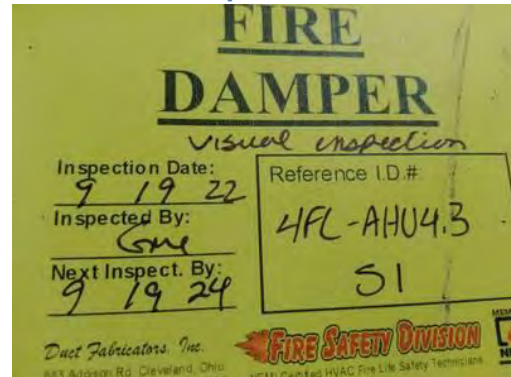 FIRE
DAMPER
visual inspection
Inspection Date:
9 19 22
Inspected By:
Next Inspect. By:
9 19 24
Reference I.D.#
4FL-AHU4.3
S1
Duct Fabricators, Inc.
883 Addison Rd. Cleveland, Ohio
FIRE SAFETY DIVISION
NEMI Certified HVAC Fire Life Safety Technicians